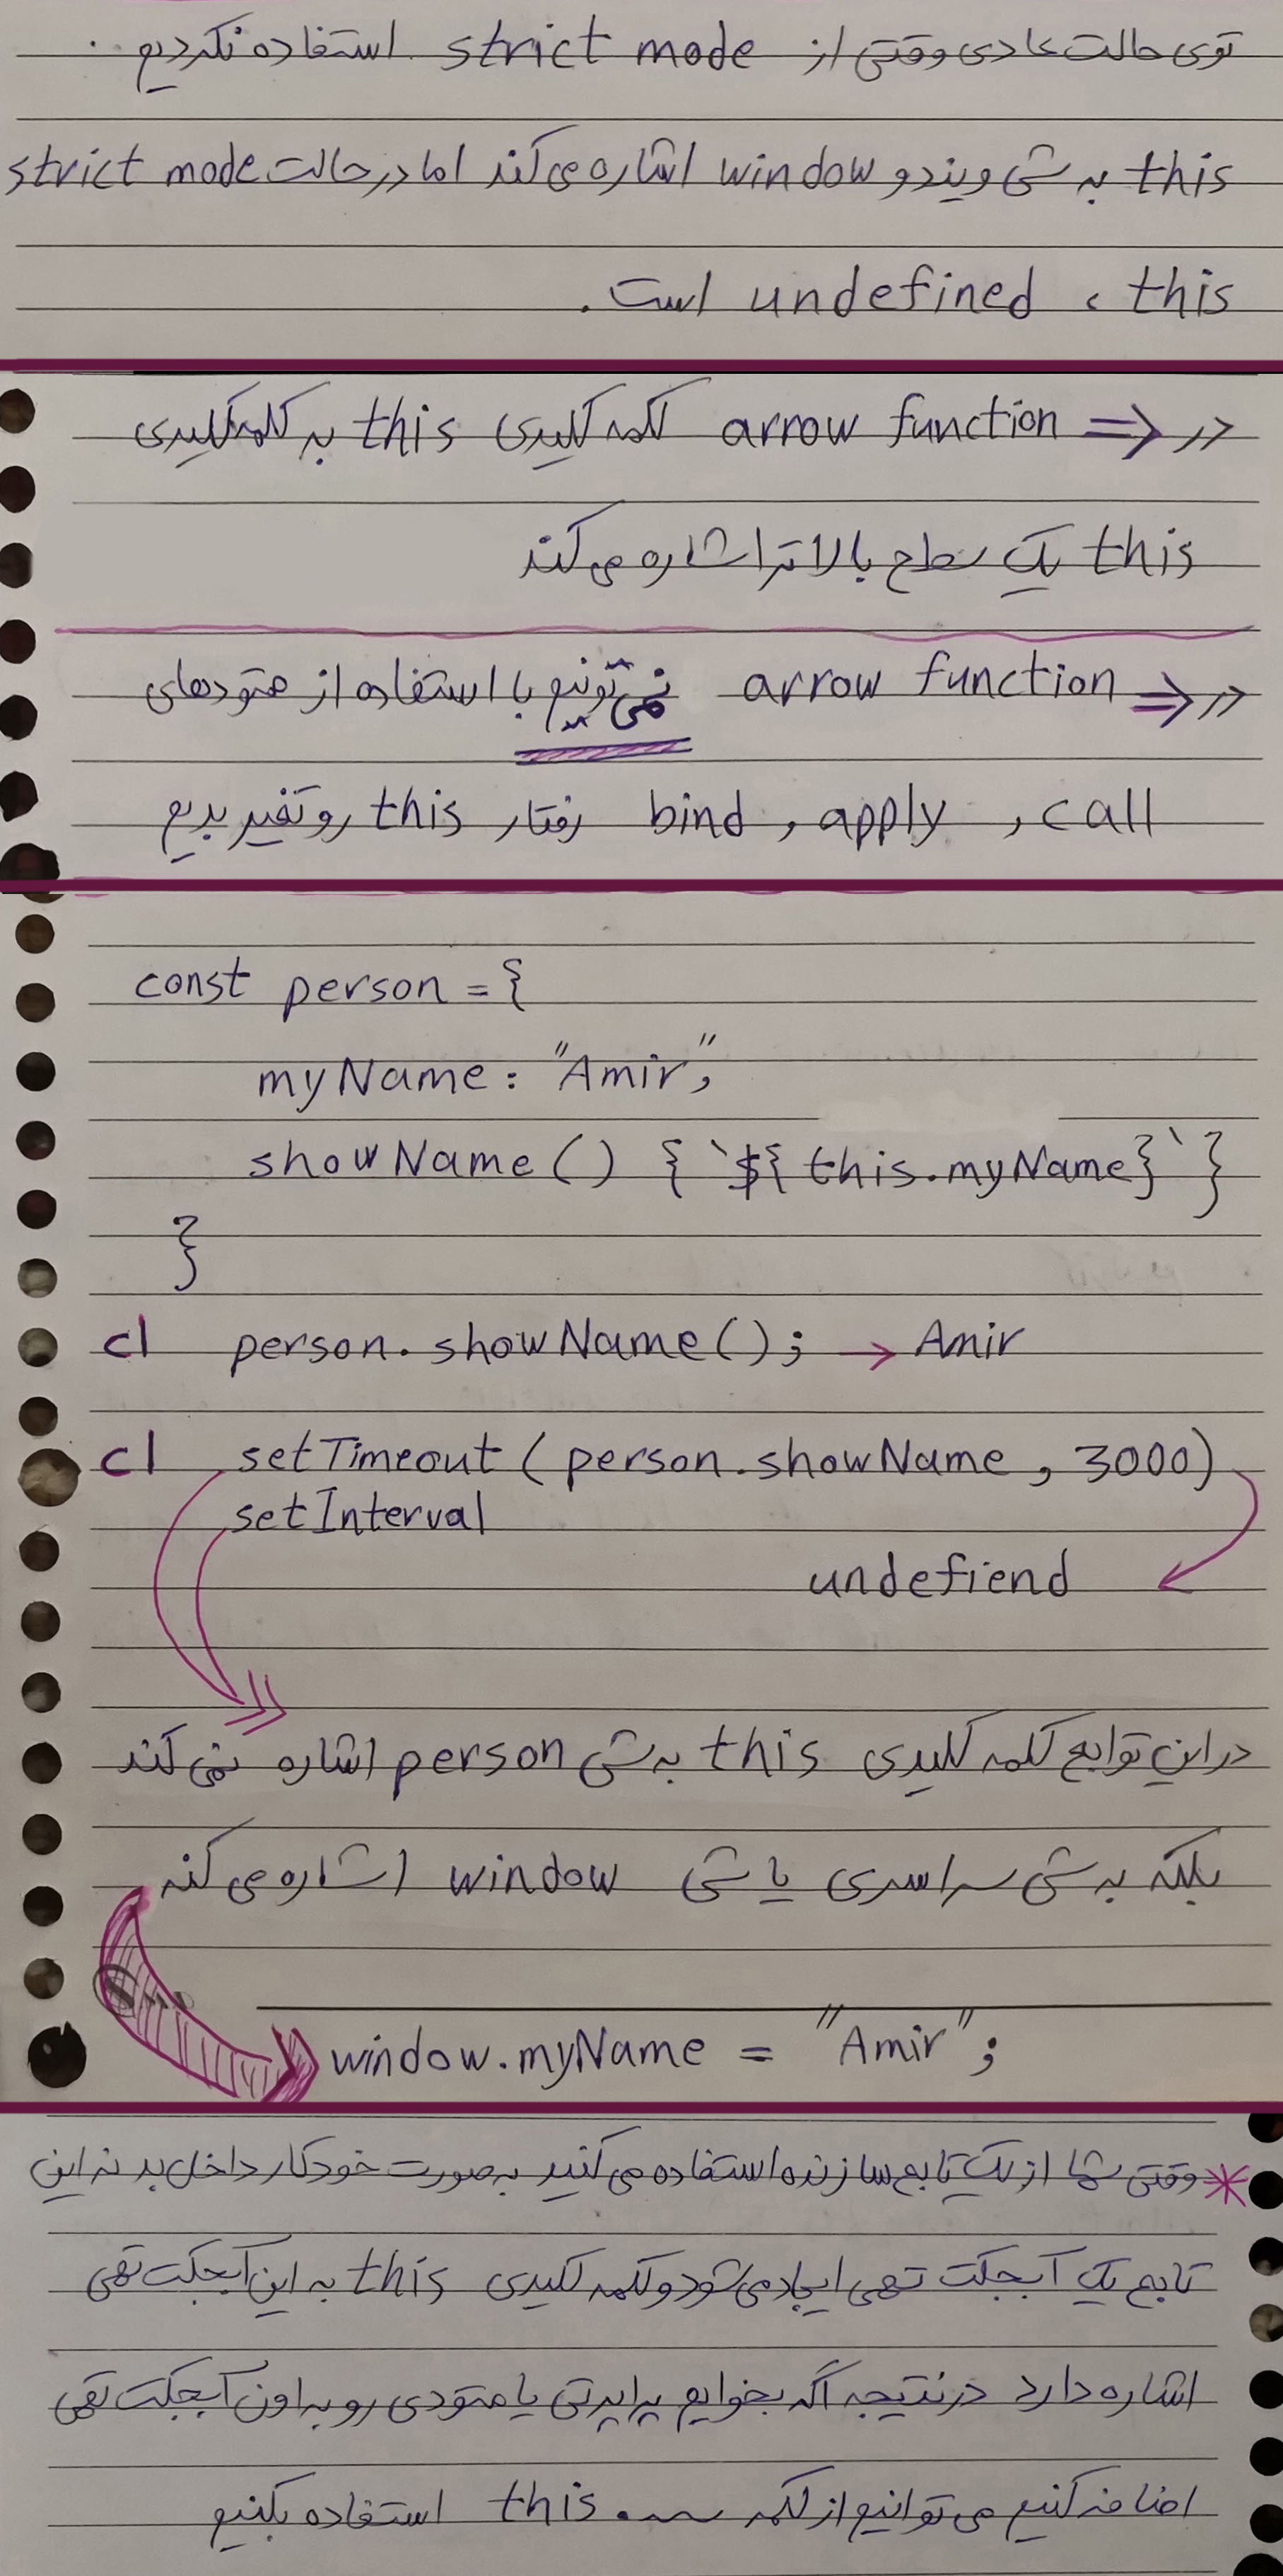 توی حالت عادی وقتی از strict mode استفاده نکردیم.
this به شی ویندو window اشاره می‌کند اما در حالت strict mode
this، undefined است.
در <= arrow function کلمه کلیدی this به کلمه کلیدی
this یک سطح بالاتر اشاره می‌کند
در <= arrow function نمی‌تونیم با استفاده از متودهای
call, apply, bind رفتار this رو تغییر بدیم
const person = {
myName: "Amir",
showName() { `${this.myName}` }
}
cl person.showName(); → Amir
cl setTimeout (person.showName, 3000)
setInterval
undefiend
در این توابع کلمه کلیدی this به شی person اشاره نمی‌کند
بلکه به شی سراسری یا شی window اشاره می‌کنه
window.myName = "Amir";
* وقتی شما از یک تابع سازنده استفاده می‌کنید به صورت خودکار داخل بدنه این
تابع یک آبجکت تهی ایجاد می‌شود و کلمه کلیدی this به این آبجکت تهی
اشاره دارد در نتیجه اگه بخوایم پراپرتی یا متودی رو به اون آبجکت تهی
اضافه کنیم می‌توانیم از کلمه this. استفاده بکنیم